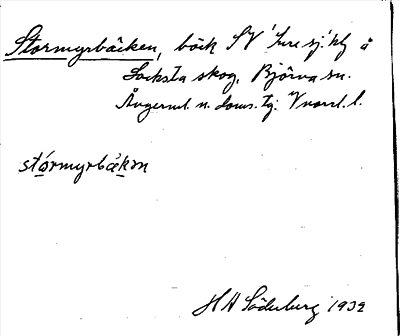 Stormyrbäcken, bäck SV
Locksta skog, Björna sn.
Ångerml. n. doms. tg. Vnorrl. l.
stórmyrbäkɜn
H A Söderberg 1932